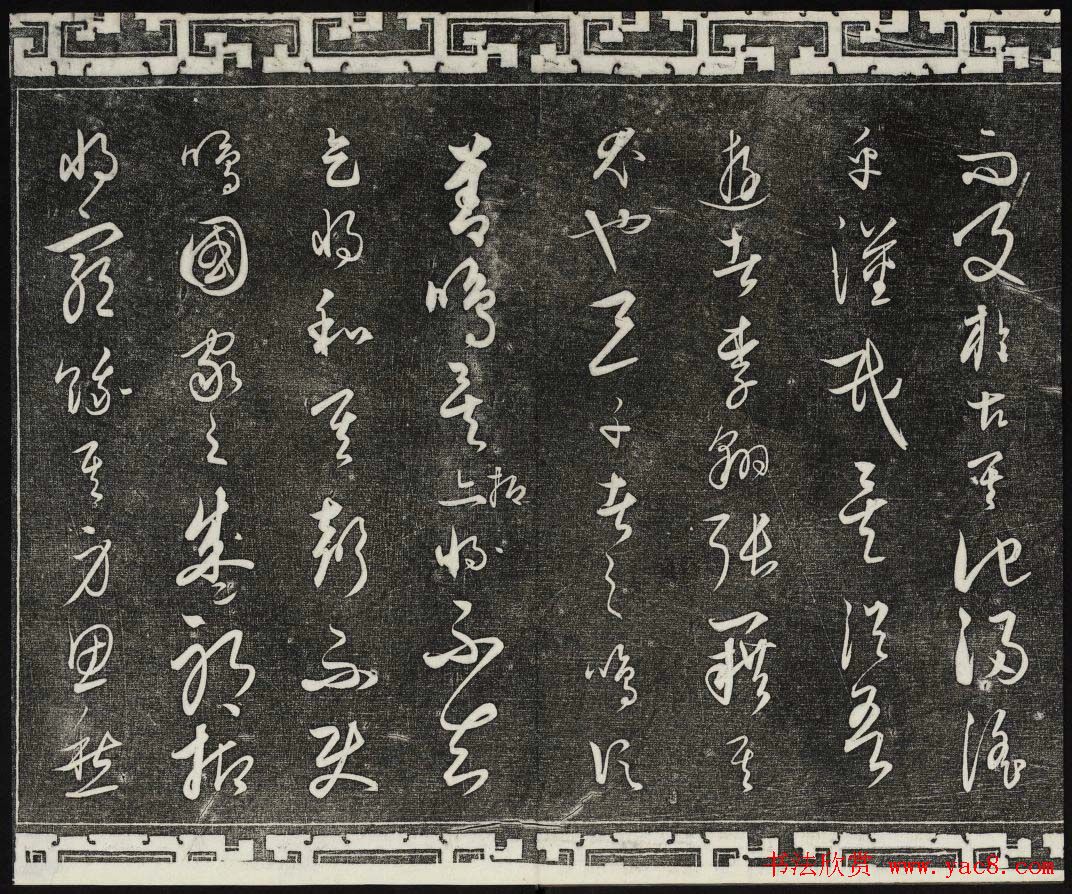 而及於古其他浸淫
乎漢氏矣從吾
遊者李翱張籍其
尤也三子者之鳴信
善鳴矣抑將不知
天將和其聲而使
鳴國家之盛邪抑
將窮餓其身思愁
书法欣赏 www.yac8.com